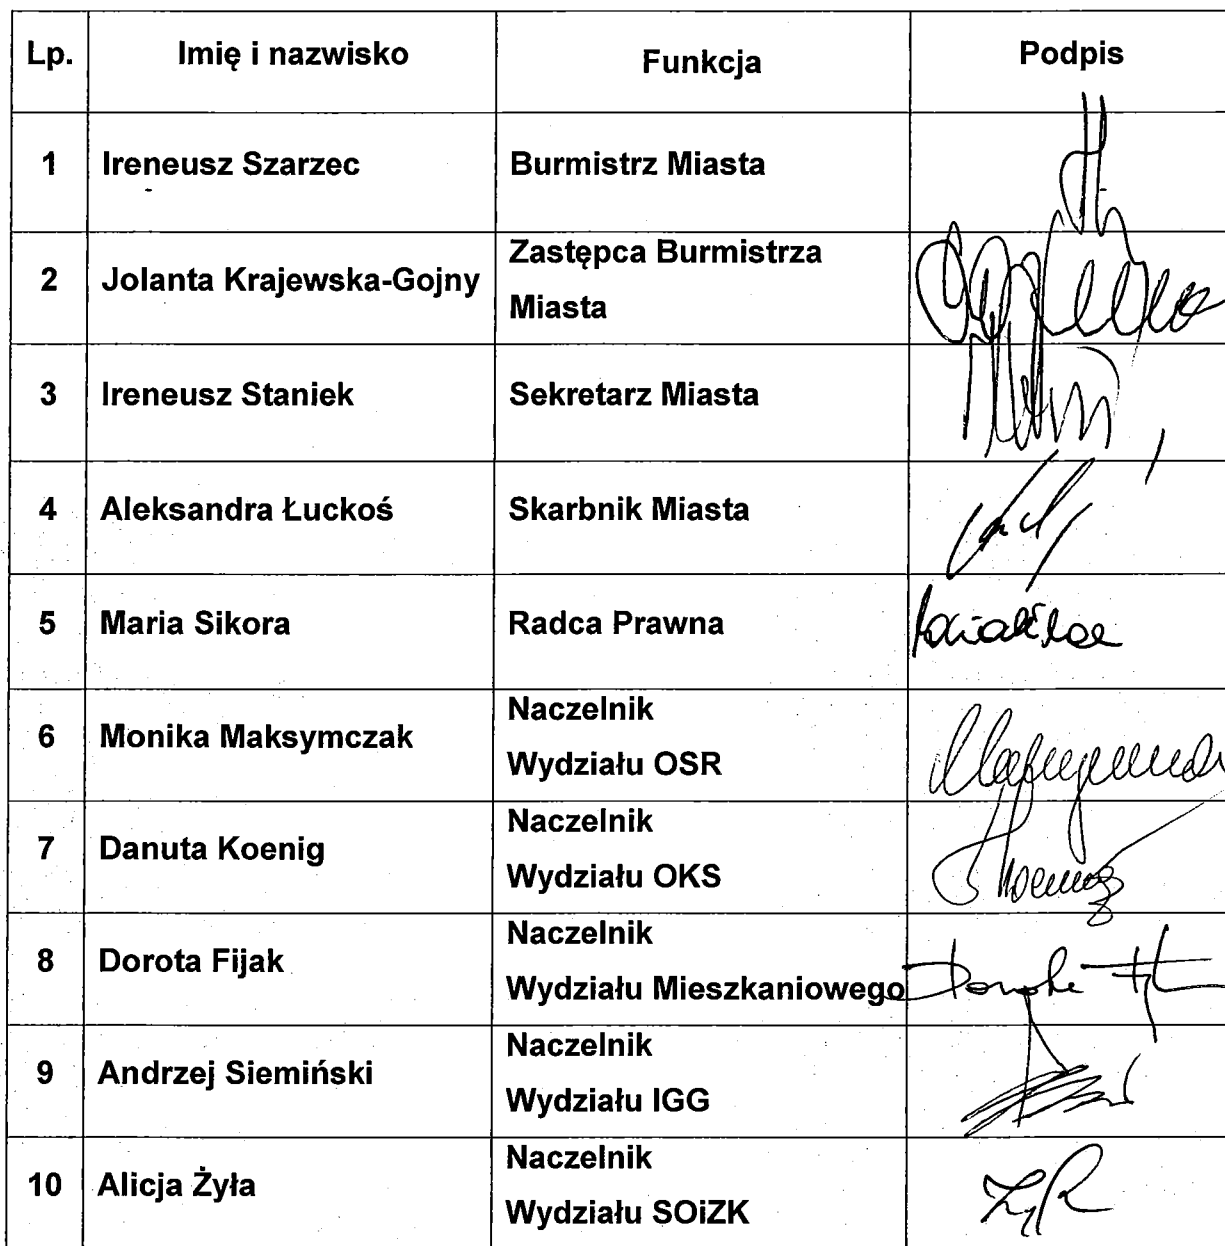 Lp. Imię i nazwisko Funkcja Podpis
1 Ireneusz Szarzec Burmistrz Miasta
2 Jolanta Krajewska-Gojny Zastępca Burmistrza
Miasta
3 Ireneusz Staniek Sekretarz Miasta
4 Aleksandra Łuckoś Skarbnik Miasta
5 Maria Sikora Radca Prawna
6 Monika Maksymczak Naczelnik
Wydziału OSR
7 Danuta Koenig Naczelnik
Wydziału OKS
8 Dorota Fijak Naczelnik
Wydziału Mieszkaniowego
9 Andrzej Siemiński Naczelnik
Wydziału IGG
10 Alicja Żyła Naczelnik
Wydziału SOiZK